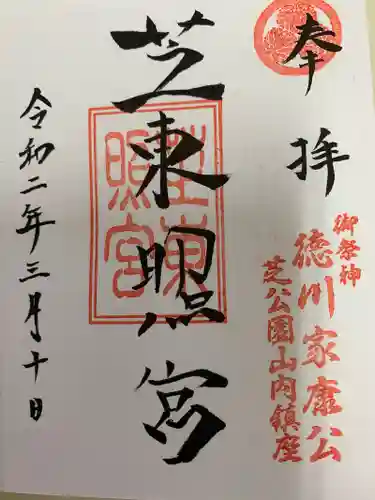 奉拝
御祭神
徳川家康公
芝公園山内鎮座
芝東照宮
芝東照宮
令和二年三月十日